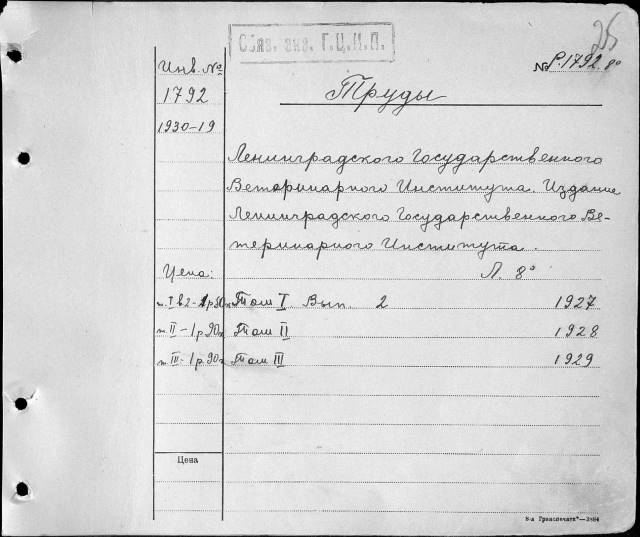 25
Обяз. экз. Г.Ц.К.П.
Инв. №
№ Р.1792. 8°
1792
Труды
1930-19
Ленинградского Государственного
Ветеринарного Института. Издание
Ленинградского Государственного Ве-
теринарного Института.
Цена:
Л. 8°
т. I в 2 - 1 р 90к Том I Вып. 2 1927
т. II - 1 р 90к Том II 1928
т. III - 1 р. 90к Том III 1929
Цена
8-я Транспечати"—2884